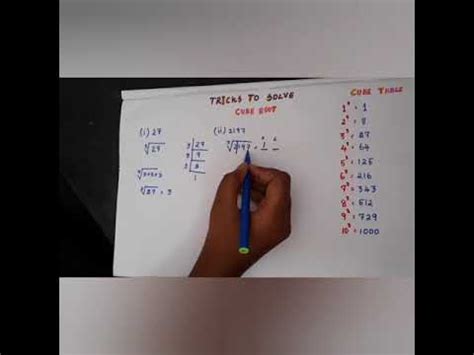 TRICKS TO SOLVE
CUBE ROOT
(i) 27
∛27
3 | 27
3 | 9
3 | 3
1
∛3×3×3
∛27 = 3
(ii) 2197
∛2197 = 1 _
CUBE TABLE
1³ = 1
2³ = 8
3³ = 27
4³ = 64
5³ = 125
6³ = 216
7³ = 343
8³ = 512
9³ = 729
10³ = 1000